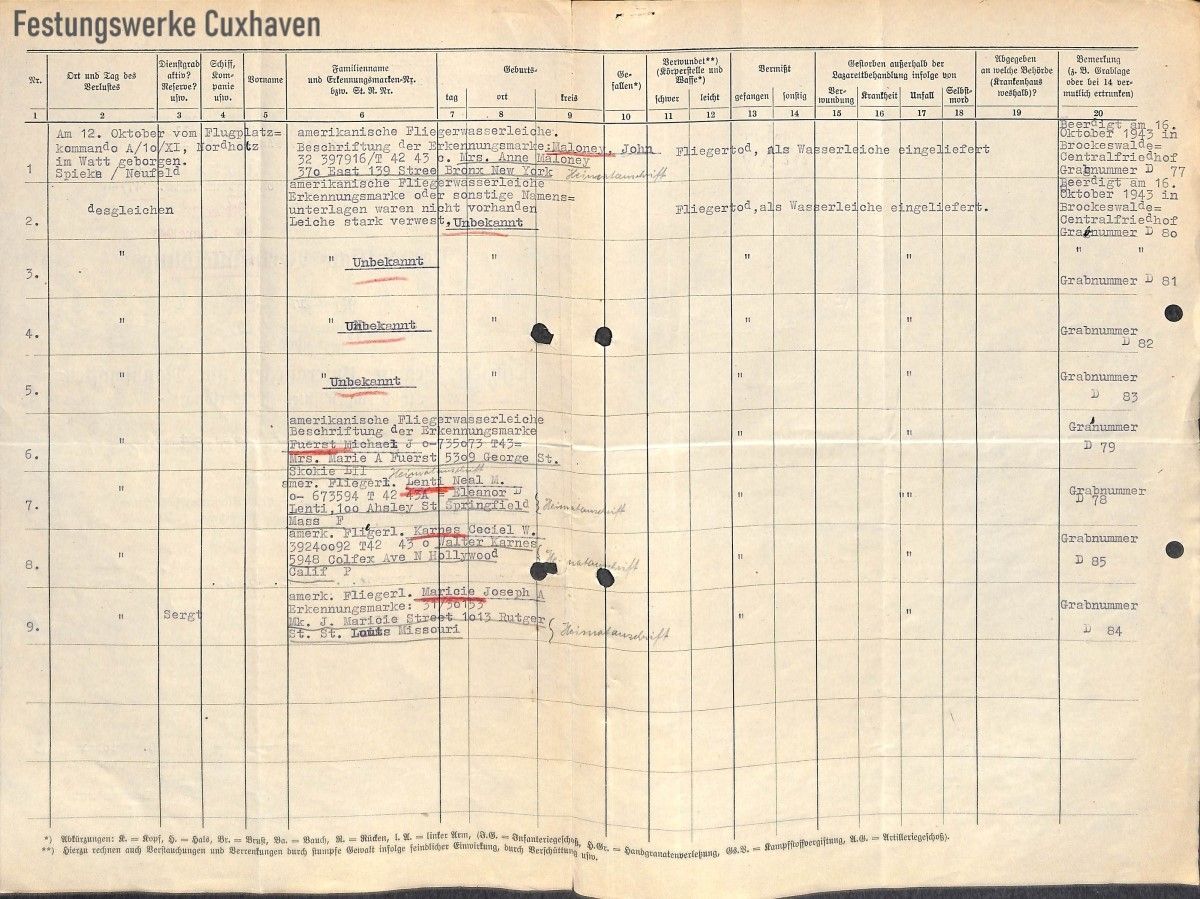 Festungswerke Cuxhaven
Nr.
Ort und Tag des
Verlustes
Dienstgrad
aktiv?
Reserve?
usw.
Schiff,
Kom-
panie
usw.
Vorname
Familienname
und Erkennungsmarken-Nr.
bzw. St. R. Nr.
Geburts-
tag ort kreis
Ge-
fallen*)
Verwundet**)
(Körperstelle und
Waffe*)
schwer leicht
Vermißt
gefangen sonstig
Gestorben außerhalb der
Lazarettbehandlung infolge von
Ver-
wundung
Krankheit
Unfall
Selbst-
mord
Abgegeben
an welche Behörde
(Krankenhaus
weshalb)?
Bemerkung
(z. B. Grablage
oder bei 14 ver-
mutlich ertrunken)
1 2 3 4 5 6 7 8 9 10 11 12 13 14 15 16 17 18 19 20
1
Am 12. Oktober vom Flugplatz=
kommando A/1o/XI, Nordholz
im Watt geborgen.
Spieka / Neufeld
amerikanische Fliegerwasserleiche.
Beschriftung der Erkennungsmarke: Maloney, John
32 397916/T 42 43 o. Mrs. Anne Maloney
37o East 139 Stree Bronx New York Heimatanschrift
Fliegertod, als Wasserleiche eingeliefert
Beerdigt am 16.
Oktober 1943 in
Brockeswalde=
Centralfriedhof
Grabnummer D 77
2.
desgleichen
amerikanische Fliegerwasserleiche
Erkennungsmarke oder sonstige Namens=
unterlagen waren nicht vorhanden
Leiche stark verwest, Unbekannt
Fliegertod, als Wasserleiche eingeliefert.
Beerdigt am 16.
Oktober 1943 in
Brockeswalde=
Centralfriedhof
Grabnummer D 8o
3.
" " Unbekannt " " " " "
Grabnummer D 81
4.
" " Unbekannt " " "
Grabnummer
D 82
5.
" " Unbekannt " " "
Grabnummer
D 83
6.
"
amerikanische Fliegerwasserleiche
Beschriftung der Erkennungsmarke
Fuerst Michael J o-735o73 T43=
Mrs. Marie A Fuerst 53o9 George St.
Skokie LII Heimatanschrift
" "
Grabnummer
D 79
7.
"
amer. Fliegerl. Lenti Neal M.
o- 673594 T 42 43A = Eleanor D
Lenti, 1oo Ahsley St Springfield
Mass P
Heimatanschrift
" ""
Grabnummer
D 78
8.
"
amerk. Fligerl. Karnes Ceciel W.
3924oo92 T42 43 o Walter Karnes
5948 Colfex Ave N Hollywood
Calif P
" "
Grabnummer
D 85
9.
" Sergt
amerk. Fliegerl. Maricie Joseph A
Erkennungsmarke:
Mk. J. Maricie Street 1o13 Rutger
St. St. Louis Missouri
Heimatanschrift
" "
Grabnummer
D 84
*) Abkürzungen: K. = Kopf, H. = Hals, Br. = Brust, Ba. = Bauch, R. = Rücken, l. A. = linker Arm, (J.G. = Infanteriegeschoß, H.Gr. = Handgranatenverletzung, Gs.V. = Kampfstoffvergiftung, A.G. = Artilleriegeschoß).
**) Hierzu rechnen auch Verstauchungen und Verrenkungen durch stumpfe Gewalt infolge feindlicher Einwirkung, durch Verschüttung usw.